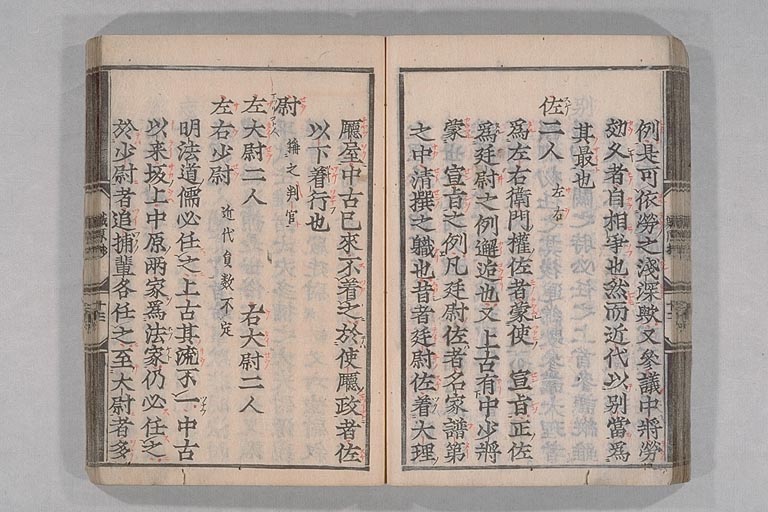 例是可依勞之淺深歟又參議中將勞
効久者自相爭也然而近代以別當爲
其最也
佐二人 左右
爲左右衛門權佐者蒙使 宣旨正佐
爲廷尉之例邂逅也又上古有中少將
蒙 宣旨之例凡廷尉佐者名家譜第
之中清撰之職也昔者廷尉佐着大理
廳屋中古已來不着之於使廳政者佐
以下着行也
尉 稱之判官
左大尉二人 右大尉二人
左右少尉 近代負數不定
明法道儒必任之上古其流不一中古
以来坂上中原兩家爲法家仍必任之
於少尉者追捕輩各任之至大尉者多